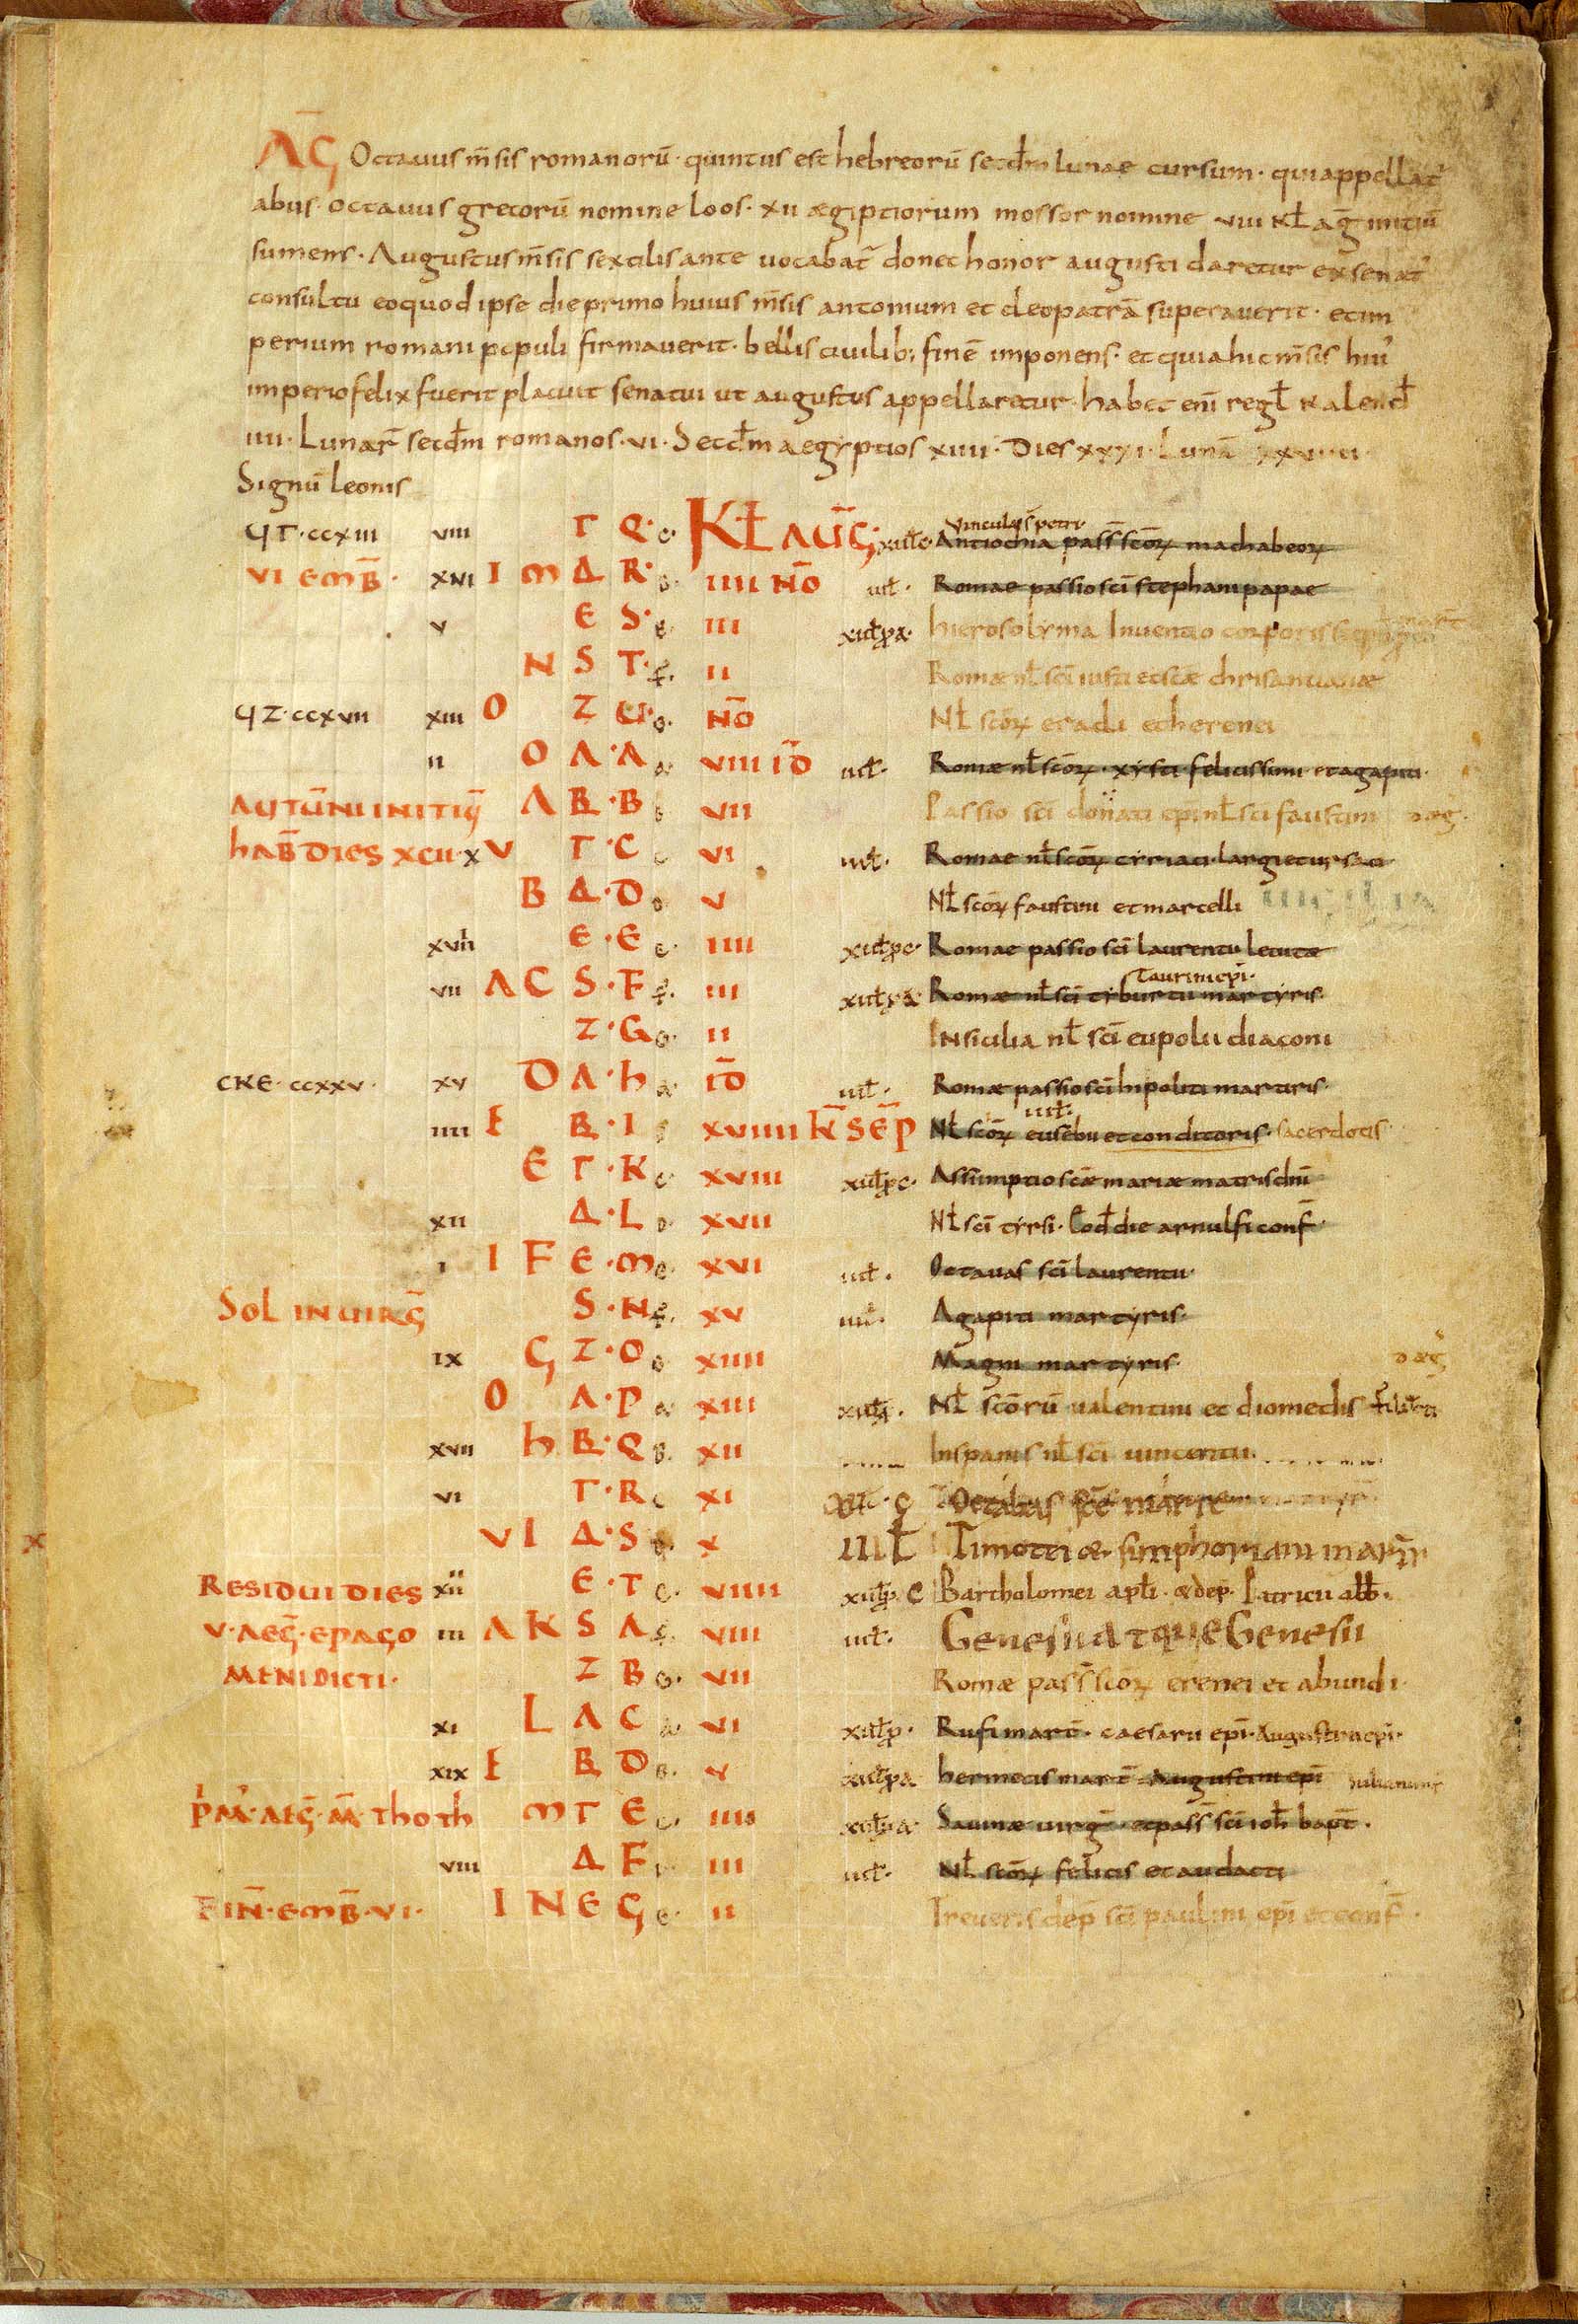 AḠ Octauus m̄sis romanorū · quintus est hebreorū secdm̄ lunae cursum · qui appellat᷒
abus · octauus grecorū nomine loos · xii aegiptiorum messor nomine viii kł aḡ initiū
sumens · Augustus m̄sis sextilis ante uocabat᷒ donec honor augusti daretur ex senat᷒
consultu eo quod ipse die primo huius m̄sis antonium et cleopatrā superauerit · et im
perium romani populi firmauerit · bellis ciuilib; finē imponens · et quia hic m̄sis hui᷒
imperio felix fuerit placuit senatui ut augustus appellaretur · habet enī regł kalend̄
iiii · Lunar̄ secdm̄ romanos · vi · Secdm̄ aegyptios xiiii · Dies xxxi · Lunā xxviiii ·
Signū leonis
CIΓ · ccxiii viii Γ Q · c · Kł AUḠ · Antiochia pass̄ scōꝝ machabeoꝝ
Vincula s̄ petri ·
VI EMB̄ · xvi I M Δ R · D · IIII NŌ uił · Romae passio scī stephani papae
v E S · E · III hierosolyma Inuentio corporis
N S T · F · II Romæ nł scī iusti et scæ
CIZ · ccxvii xiii O Z U · G · NŌ Nł scōꝝ eradi et herenei
ii O A · A a · VIII ID̄ uił · Romæ nł scōꝝ · xysti felicissimi et agapiti ·
AUTŪNI INITIŪ A B · B B VII Passio scī donati epī nł scī faustini
HAB̄ DIES XCII · x V Γ · C c VI uił · Romae nł scōꝝ cyriaci largi et
B Δ · D D V Nł scōꝝ faustini et marcelli
xviii E · E E · IIII Romae passio scī laurentii leuitæ
vii A C S · F F · III Romæ nł scī tyburtii martyris ·
Taurini epī ·
Z · G G · II In sicilia nł scī eupolii diaconi
CKE · ccxxv · xv D A · h a · ID̄ uił · Romæ passio scī hipoliti martiris ·
iiii E B · I B XVIIII K̄ SEP̄ Nł scōꝝ eusebii et conditoris · sacerdotis
E Γ · K c · XVIII Assumptio scæ mariæ matris dnī
xii Δ · L D · XVII Nł scī tyrsi · Eod̄ die arnulfi conf̄ ·
i I F E · M E · XVI uił · Octauas scī laurentii ·
SOL IN UIRḠ S · N F · XV Agapiti martyris ·
ix G Z · O G · XIIII Magni martyris ·
O A · P a · XIII Nł scōrū ualentini et diomedis
xvii h B · Q B · XII Inspanis nł scī uincentii ·
vi Γ · R c XI Octabas scē marie
VI Δ · S D · X IIIł Timotei & simphoriani
RESIDUI DIES xii E · T E · VIIII Bartholomei apłi · & dep̄ · Patricii abb̄ ·
V · AEḠ · EPAGO iii A K S A F · VIII uił · Genesii atque Genesii
MENI DICTI · Z B G · VII Romæ pass̄ scōꝝ erenei et abundi ·
xi L A C a · VI Rufi mart̄ · caesarii epī · Augustini epī ·
xix E B D B · V hermetis mart̄ · Augustini epī
PM᷒ · AEḠ · M̄ · THOTH M Γ E c · IIII Sauinæ uirḡ · et pass̄ scī ioh̄ bapt̄ ·
viii Δ F D · III uił · Nł scōꝝ felicis et audacti
FIN̄ · EMB̄ · VI · I N E G E · II Treueris dep̄ scī paulini epī et conf̄ ·